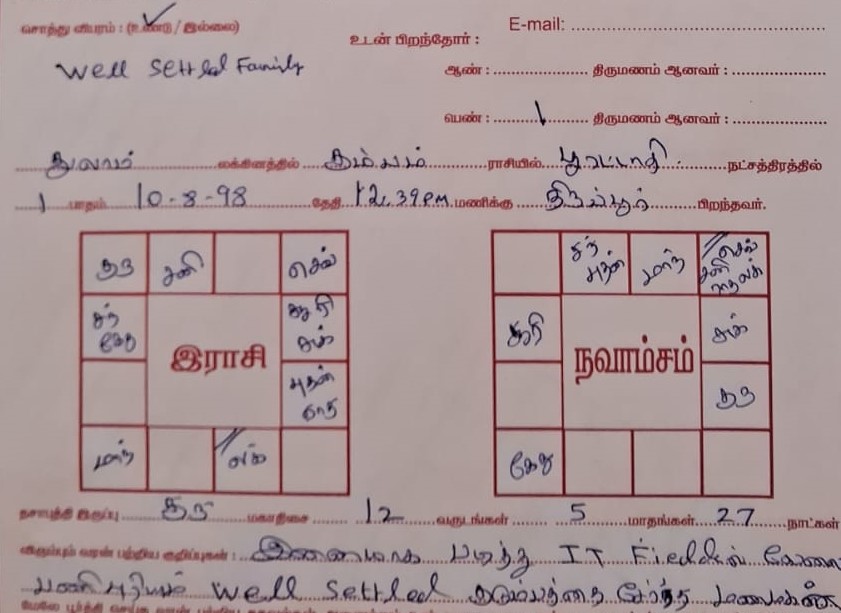 சொத்து விபரம் : (உண்டு / இல்லை)
E-mail:
உடன் பிறந்தோர் :
Well Settled Family
ஆண் : திருமணம் ஆனவர் :
பெண் : 1 திருமணம் ஆனவர் :
துலாம் லக்கினத்தில் கும்பம் ராசியில் பூரட்டாதி நட்சத்திரத்தில்
1 பாதம் 10-8-98 தேதி 12.39 PM மணிக்கு திருப்பூர் பிறந்தவர்.
குரு சனி செவ்
சந் கேது
சூரி சுக்
புதன் ராகு
மாந் லக்
இராசி
சந் புதன் மாந் செவ் சனி ராகு லக்
சூரி சுக்
குரு
கேது
நவாம்சம்
தசாபுத்தி இருப்பு குரு மகாதிசை 12 வருடங்கள் 5 மாதங்கள் 27 நாட்கள்
விரும்பும் வரன் பற்றிய குறிப்புகள் : இணையாக படித்து IT Fieldல் வேலை
பணிபுரியும் Well Settled குடும்பத்தை சேர்ந்த மணமகன்